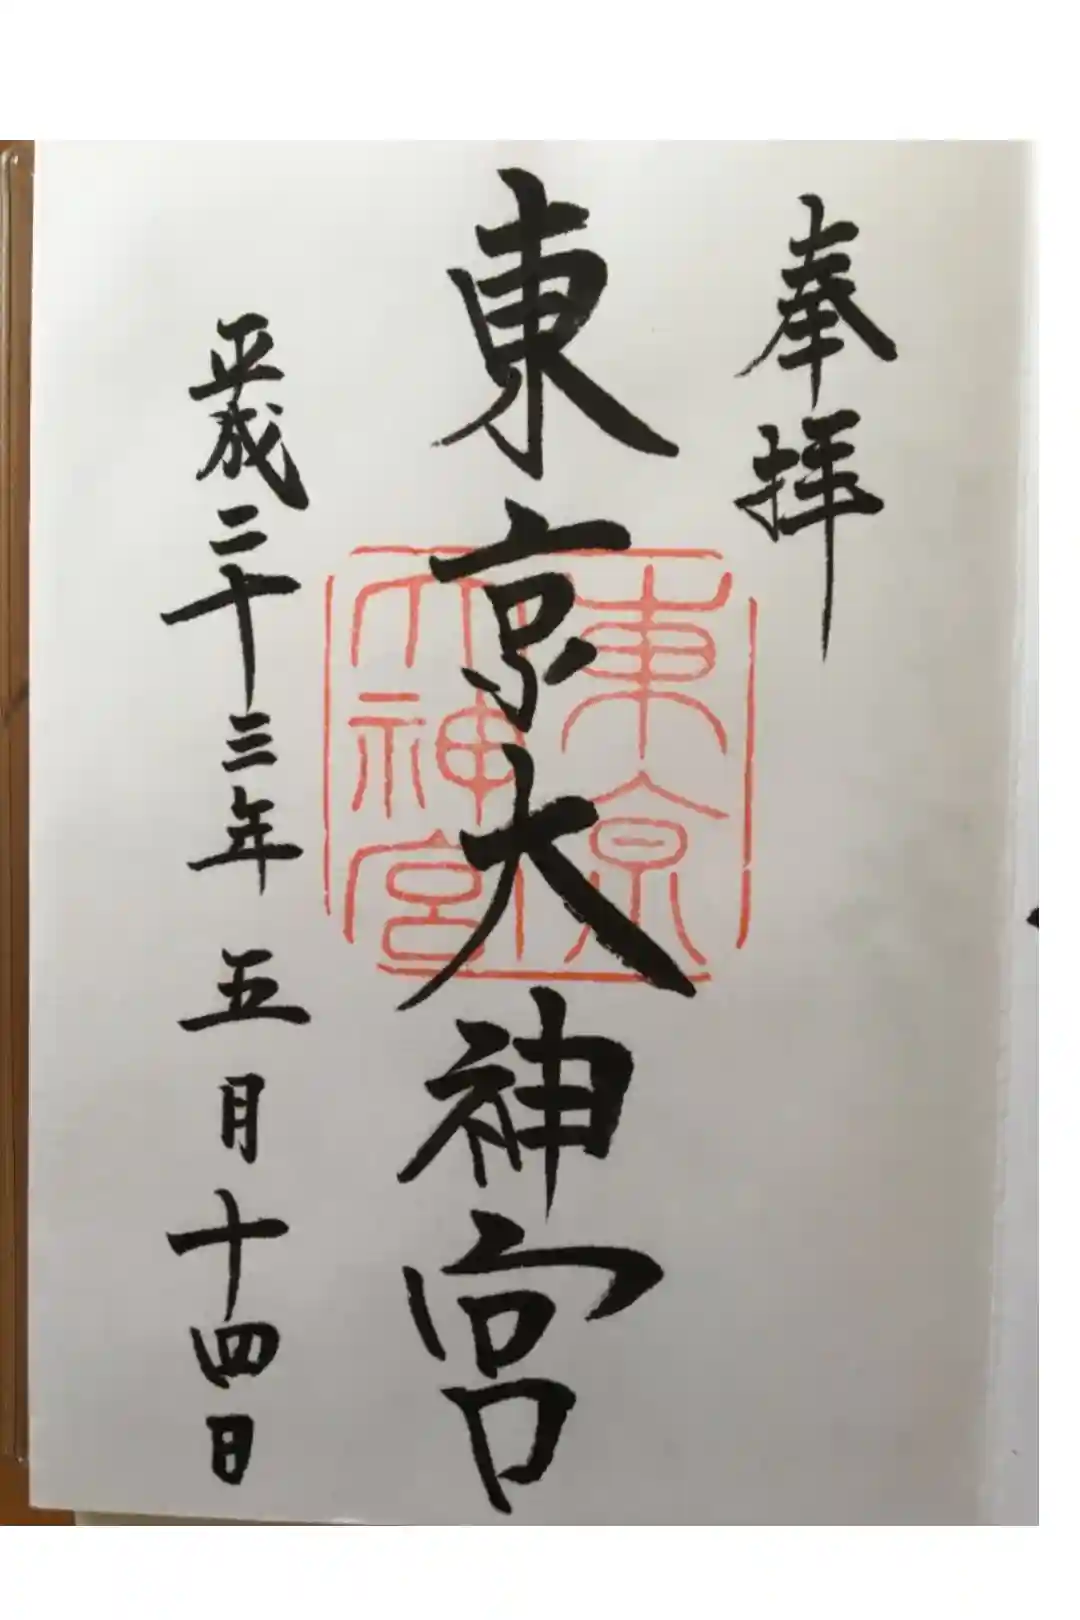 奉拝
東京大神宮
東京大神宮
平成二十三年五月十四日